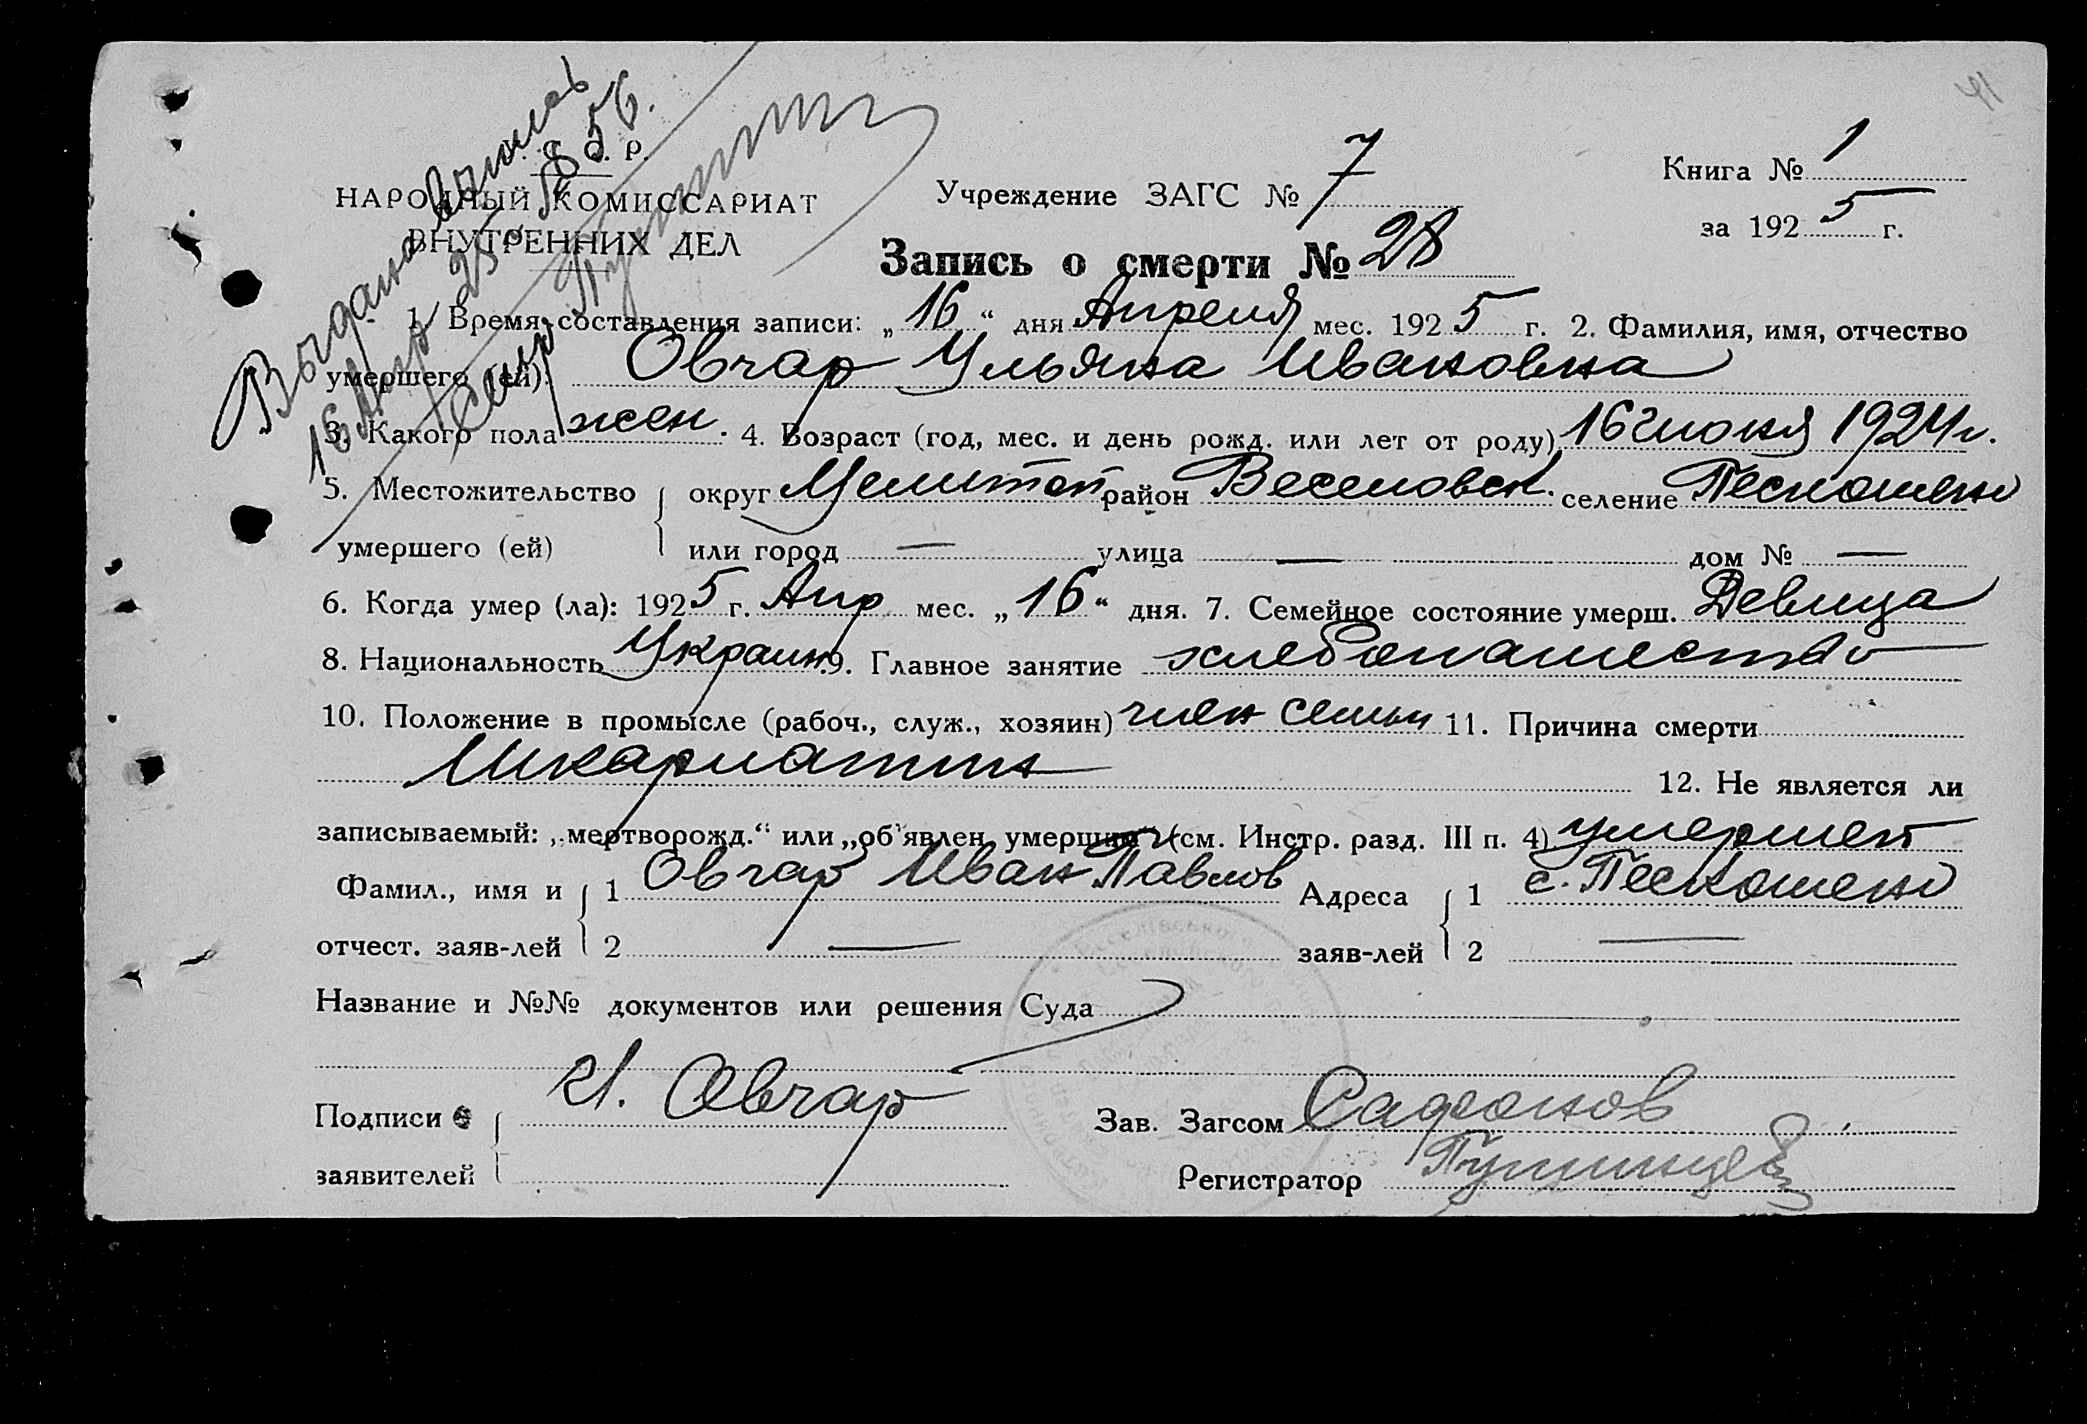 41
Выдана выпись
16 Апр 25 г. № 56.
С. С. Р.
НАРОДНЫЙ КОМИССАРИАТ
ВНУТРЕННИХ ДЕЛ
Учреждение ЗАГС № 7
Книга № 1
за 1925 г.
Запись о смерти № 28
1. Время составления записи: „16“ дня Апреля мес. 1925 г. 2. Фамилия, имя, отчество
умершего (ей): Овчар Ульяна Ивановна
3. Какого пола жен. 4. Возраст (год, мес. и день рожд. или лет от роду) 16 июня 1924 г.
5. Местожительство округ Мелитоп район Веселовск. селение Пескошено
умершего (ей) или город — улица — дом № —
6. Когда умер (ла): 1925 г. Апр мес. „16“ дня. 7. Семейное состояние умерш. Девица
8. Национальность Украин 9. Главное занятие хлебопашество
10. Положение в промысле (рабоч., служ., хозяин) член семьи 11. Причина смерти
Шкарлатин 12. Не является ли
записываемый: „мертворожд.“ или „об'явлен умершим“ (см. Инстр. разд. III п. 4) умершей
Фамил., имя и 1 Овчар Иван Павлов Адреса 1 с. Пескошено
отчест. заяв-лей 2 — заяв-лей 2 —
Название и №№ документов или решения Суда
Подписи И. Овчар Зав. Загсом Сафонов
заявителей Регистратор